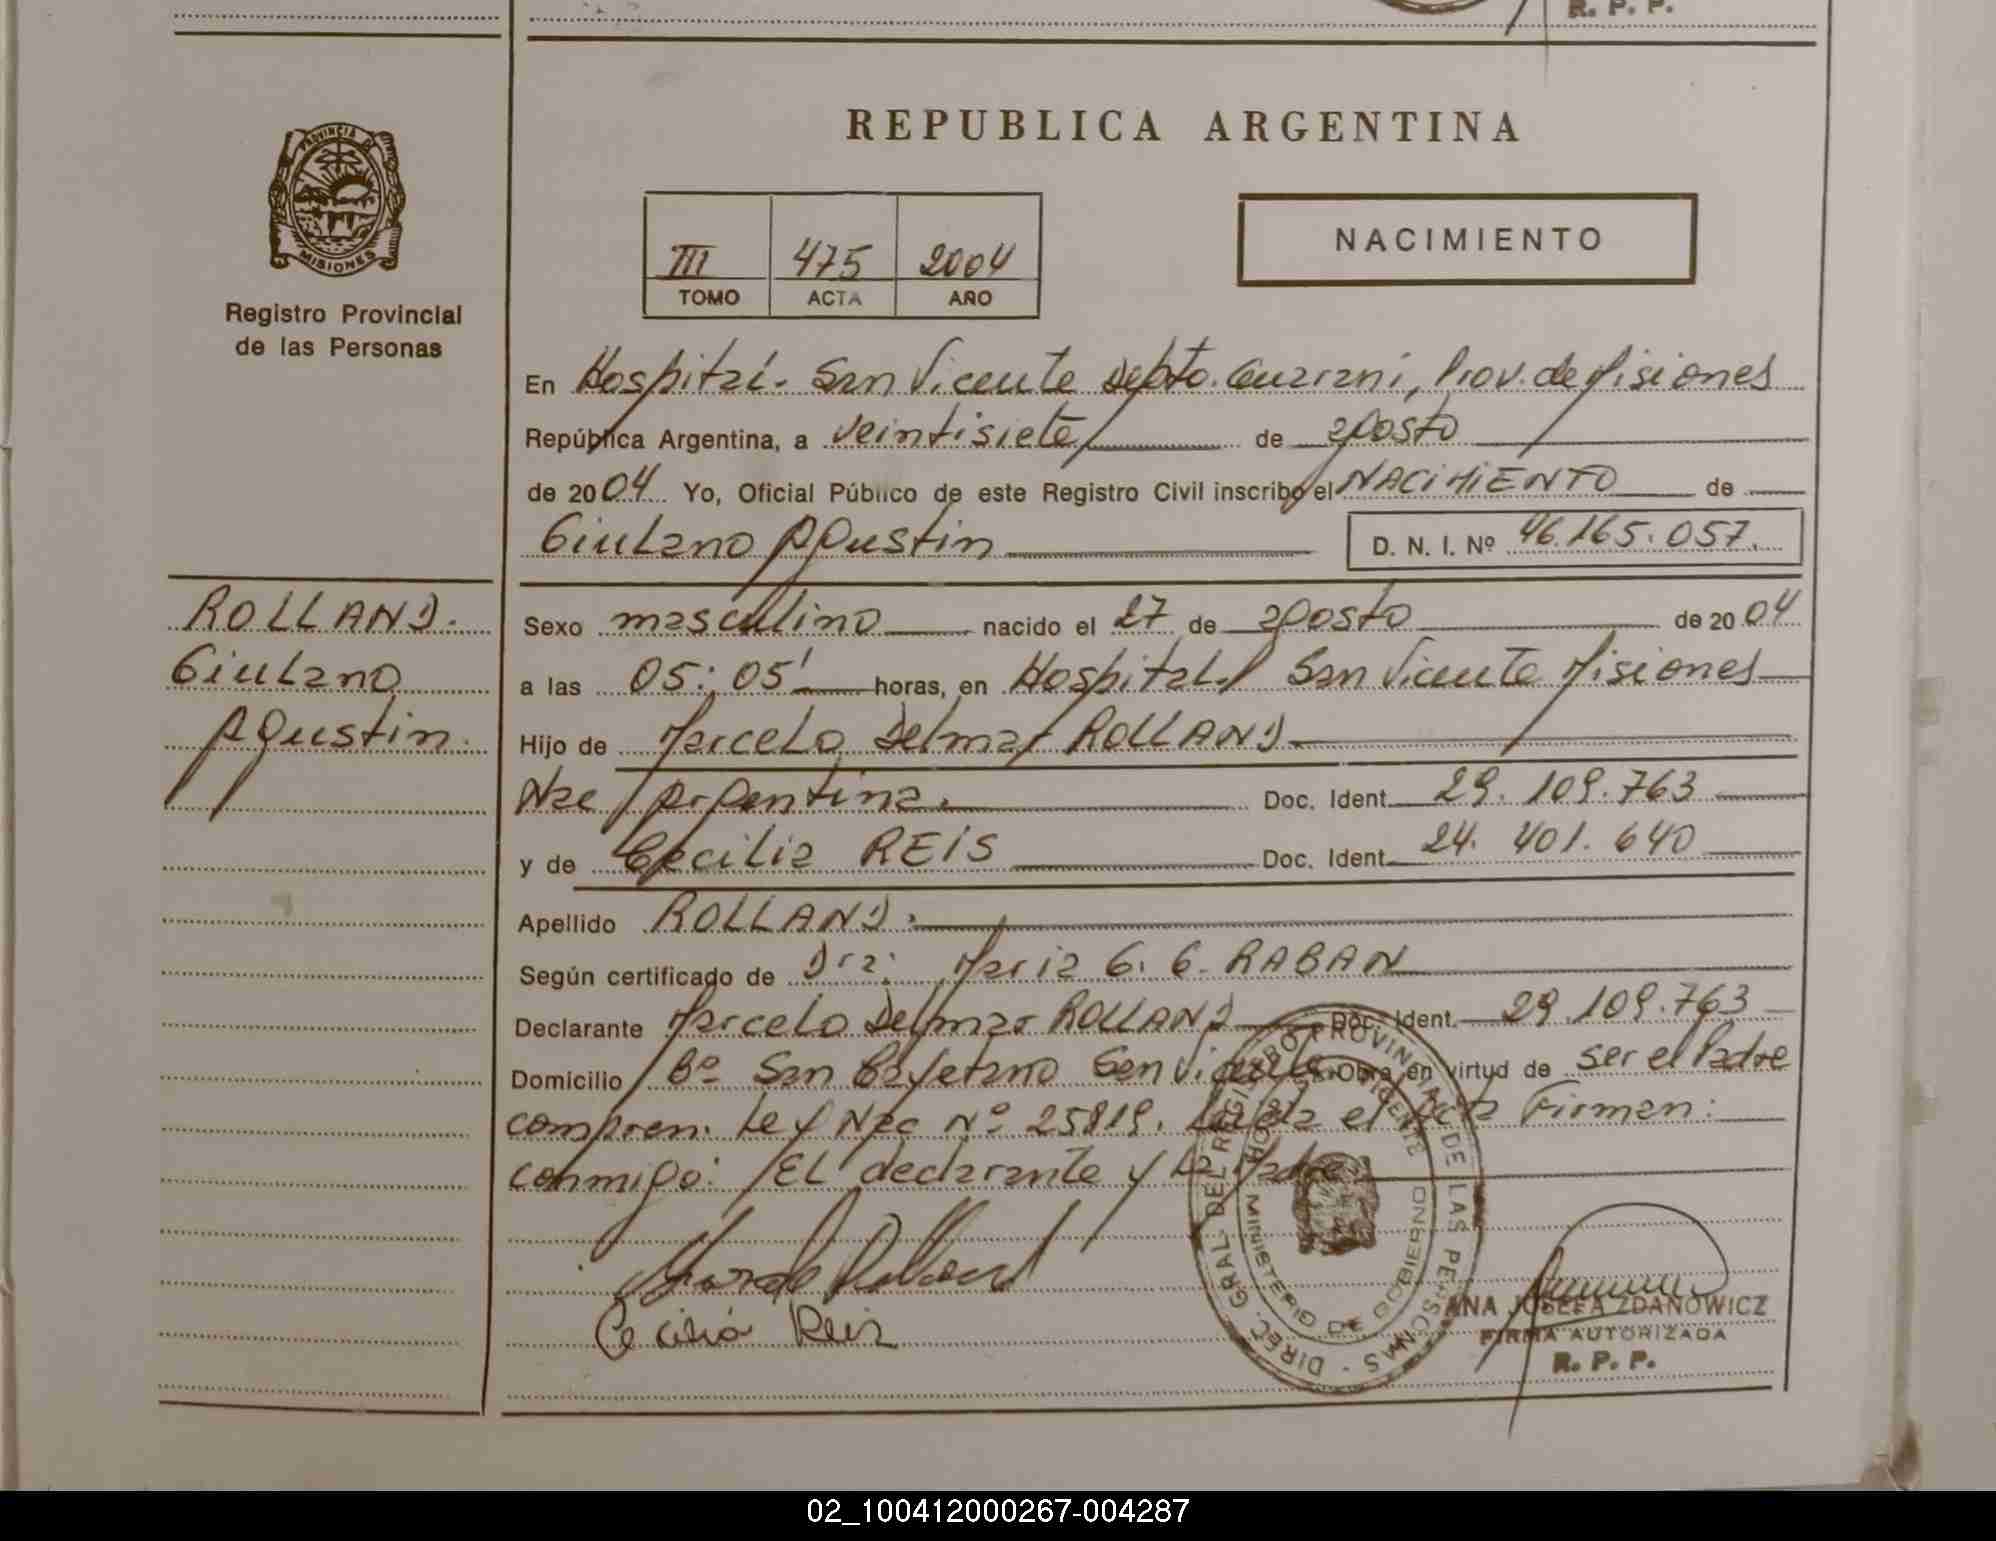 R. P. P.
REPUBLICA ARGENTINA
PROVINCIA DE
MISIONES
Registro Provincial
de las Personas
III 475 2004
TOMO ACTA AÑO
NACIMIENTO
En Hospital. San Vicente Depto. Guaraní, Prov. de Misiones
República Argentina, a veintisiete de agosto
de 2004 Yo, Oficial Público de este Registro Civil inscribo el NACIMIENTO de
Giulano Agustin D. N. I. Nº 46.165.057.
ROLLAND.
Giulano
Agustin.
Sexo masculino nacido el 27 de agosto de 2004
a las 05:05' horas, en Hospital. San Vicente Misiones
Hijo de Marcelo Delmar ROLLAND
Nac Argentina. Doc. Ident. 29.109.763
y de Cecilia REIS Doc. Ident. 24.401.640
Apellido ROLLAND.
Según certificado de Dra: Maria G. G. RABAN
Declarante Marcelo Delmar ROLLAND Doc. Ident. 29 109.763
Domicilio Bº San Cayetano San Vicente Obra en virtud de ser el Padre
compren. Ley Nac Nº 25819. Leída el Acta Firman:
conmigo: El declarante y la Madre
Marcelo Rolland
Cecilia Reis
DIREC. GRAL. DEL REGISTRO PROVINCIAL DE LAS PERSONAS
MINISTERIO DE GOBIERNO
ANA JOSEFA ZDANOWICZ
FIRMA AUTORIZADA
R. P. P.
02_100412000267-004287